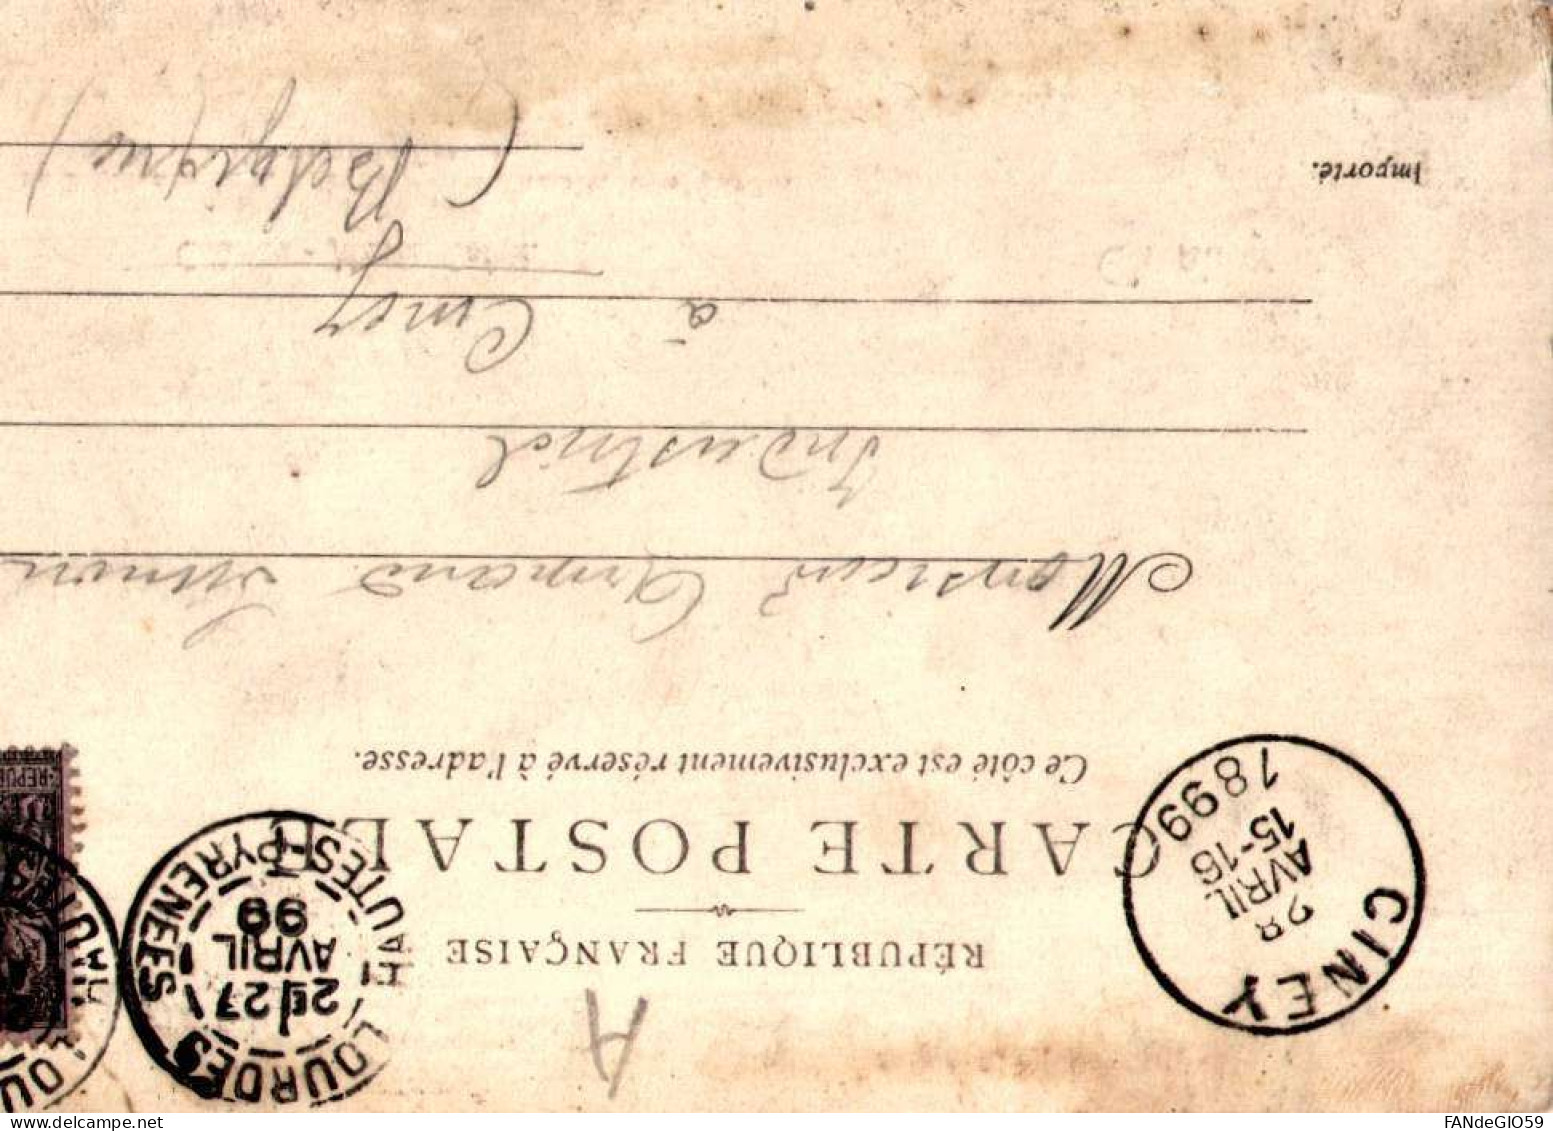 A
RÉPUBLIQUE FRANÇAISE
CARTE POSTALE
Ce côté est exclusivement réservé à l'adresse.
CINEY
28
AVRIL
15-16
1899
LOURDES
2E 27
AVRIL
99
HAUTES-PYRENEES
LOU
HAUT
RÉPU
Monsieur Armand Simon
Industriel
à Ciney
(Belgique)
Importé.
FANdeGIO59